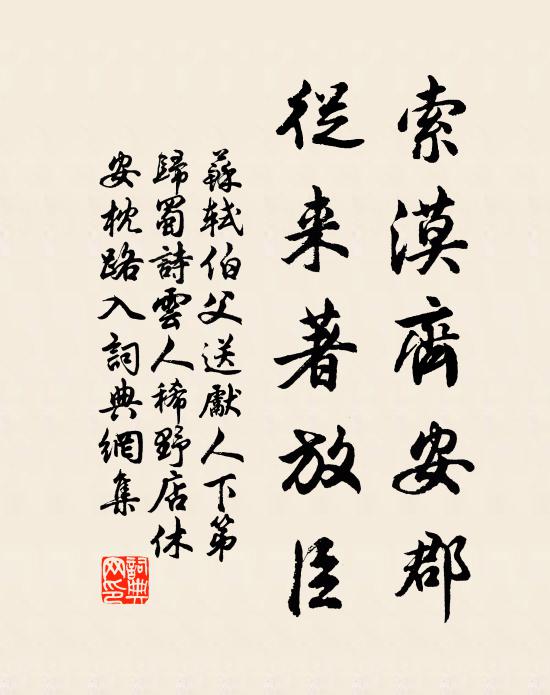 索漠齊安郡
從来著放臣
蘇軾伯父送獻人下第
歸蜀詩雲人稀野店休
安枕路入詞典網集
詞典网印